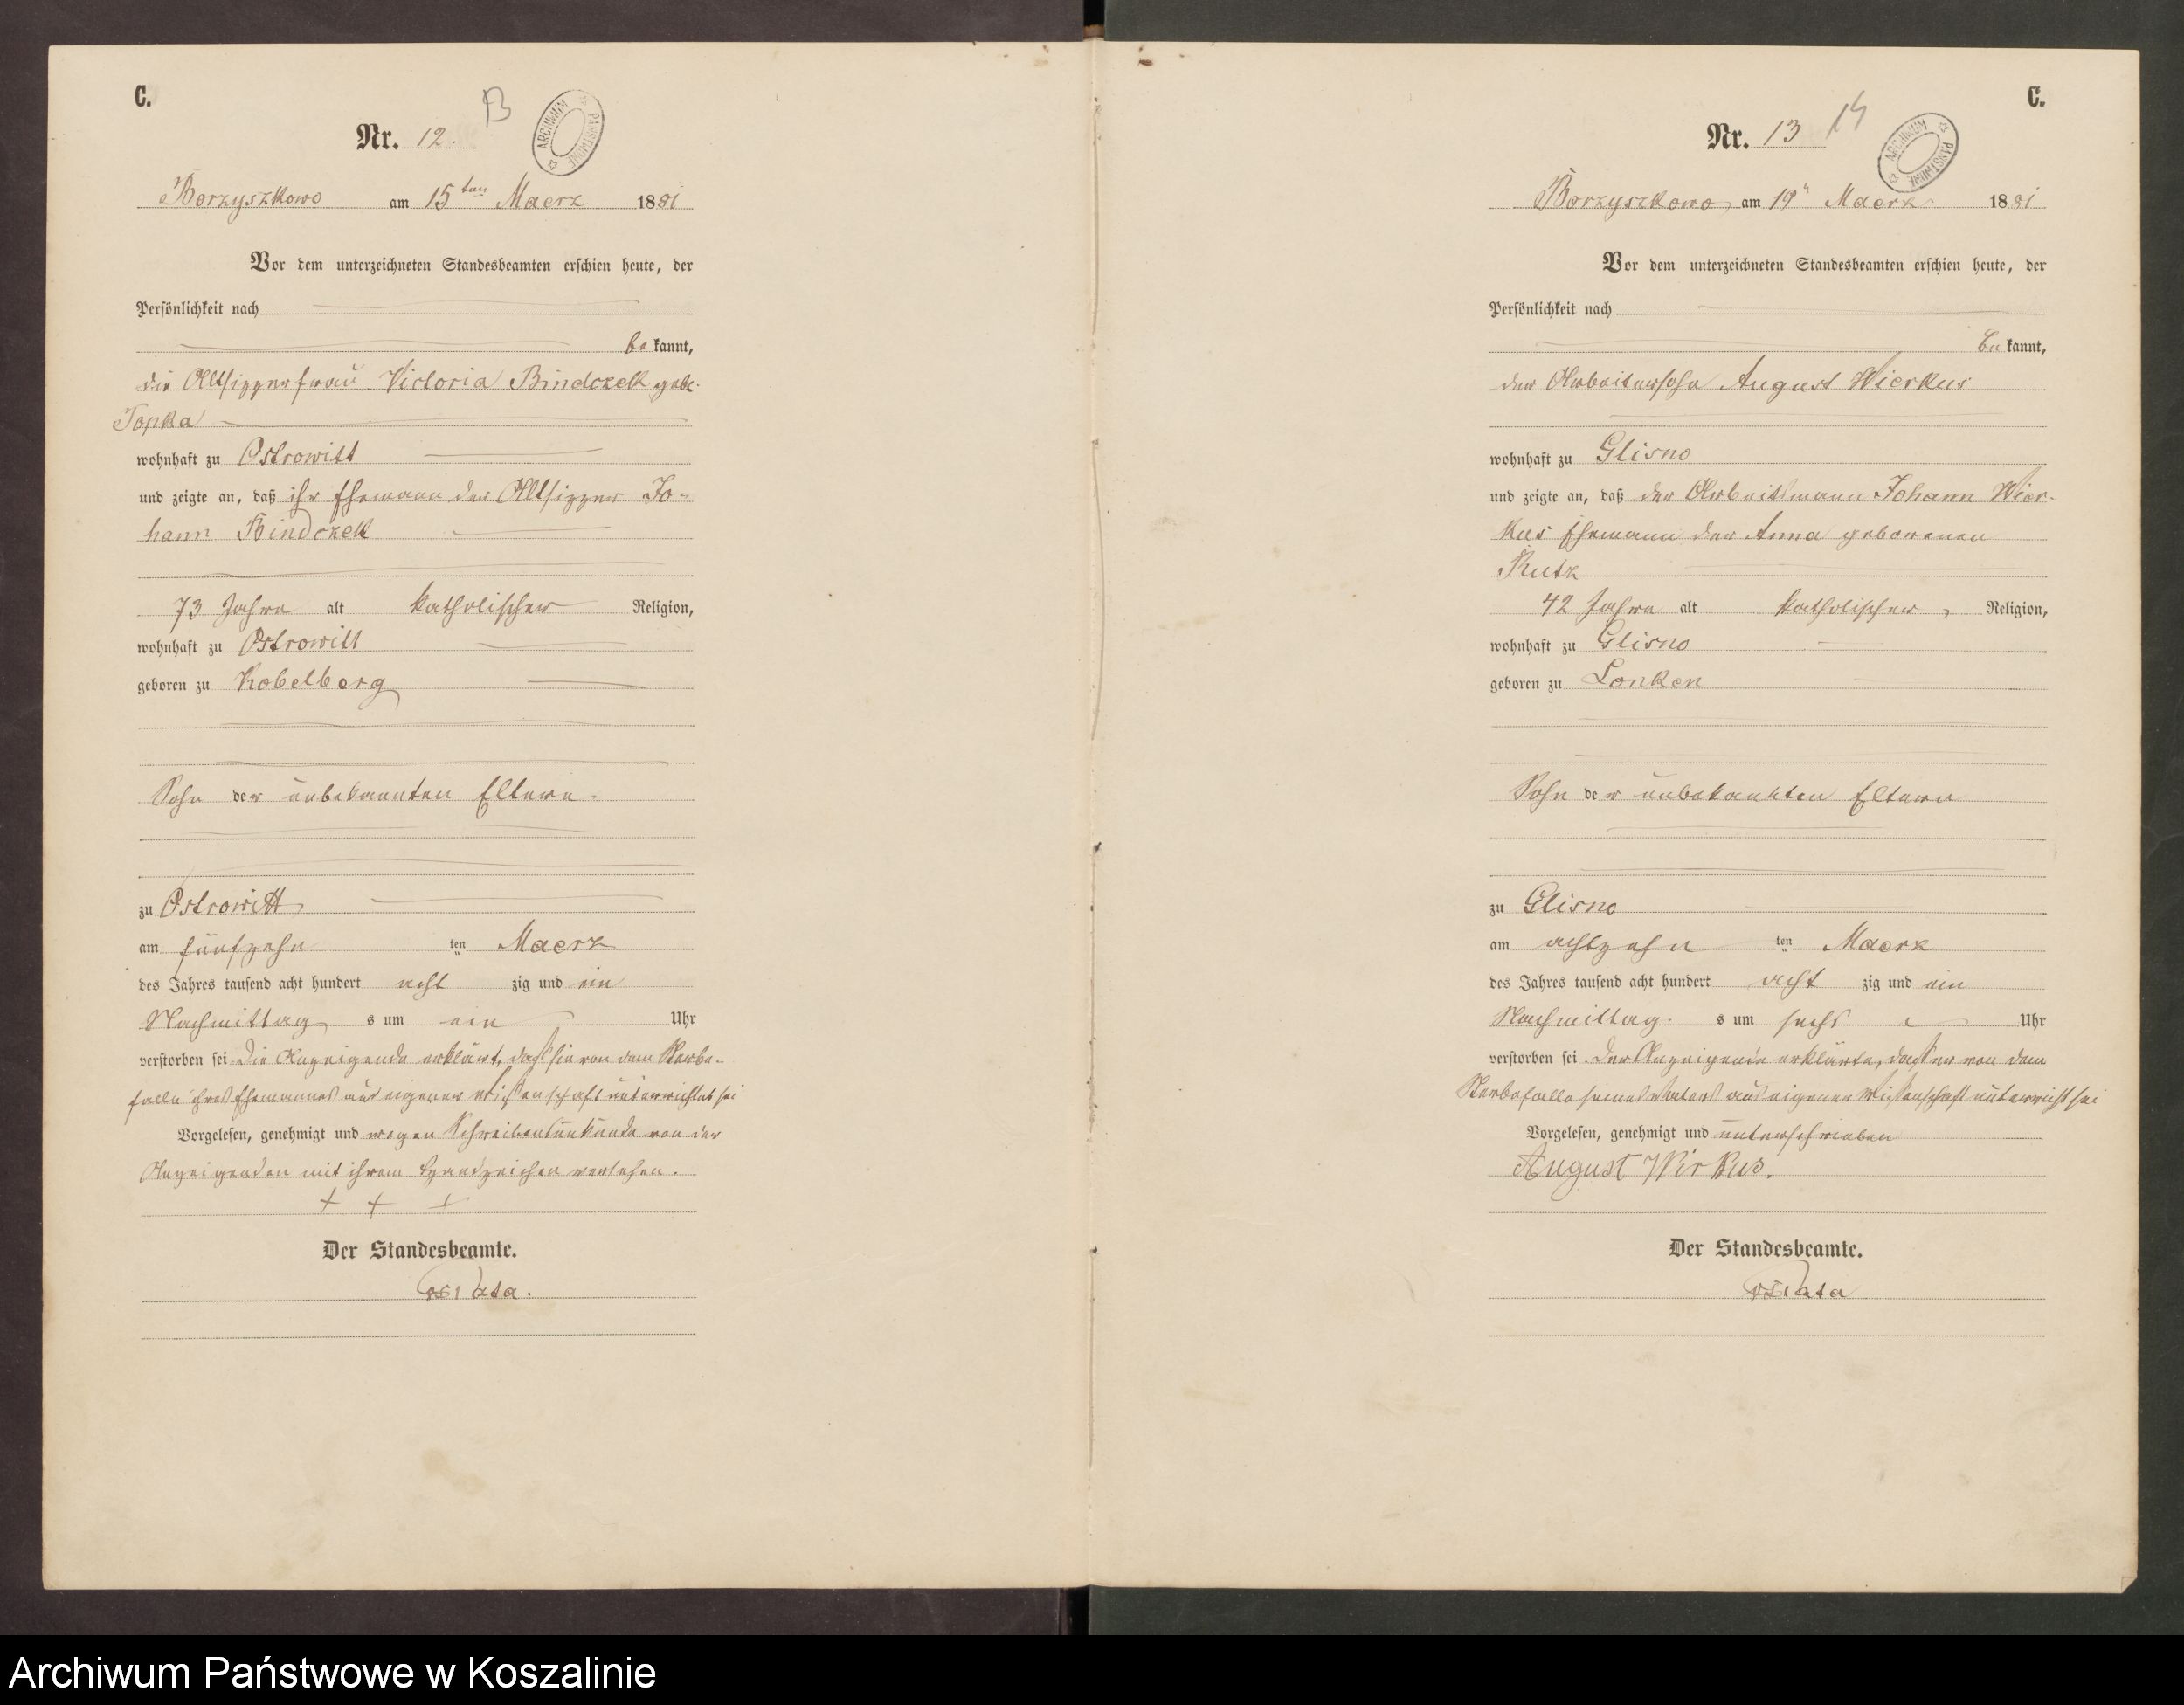 C.
Nr. 12.
13
ARCHIWUM PAŃSTWOWE
Borzyszkowo am 15ten Maerz 1881
Vor dem unterzeichneten Standesbeamten erschien heute, der
Persönlichkeit nach
be kannt,
die Altsitzerfrau Victoria Bindczek geb.
Topka
wohnhaft zu Ostrowitt
und zeigte an, daß ihr Ehemann der Altsitzer Jo-
hann Bindczek
73 Jahre alt katholischer Religion,
wohnhaft zu Ostrowitt
geboren zu Kobelberg
Sohn der unbekannten Eltern
zu Ostrowitt
am fünfzehn ten Maerz
des Jahres tausend acht hundert acht zig und ein
Nachmittag s um ein Uhr
verstorben sei. Die Anzeigende erklärt, daß sie von dem Sterbe-
falle ihres Ehemannes aus eigener Wissenschaft unterrichtet sei
Vorgelesen, genehmigt und wegen Schreibensunkunde von der
Anzeigenden mit ihrem Handzeichen versehen.
+ + +
Der Standesbeamte.
C.
Nr. 13
14
ARCHIWUM PAŃSTWOWE
Borzyszkowo, am 19ten Maerz 1881
Vor dem unterzeichneten Standesbeamten erschien heute, der
Persönlichkeit nach
be kannt,
der Arbeitersohn August Wierkus
wohnhaft zu Glisno
und zeigte an, daß der Arbeitsmann Johann Wier-
kus Ehemann der Anna geborenen
Rutz
42 Jahre alt katholischer, Religion,
wohnhaft zu Glisno
geboren zu Lonken
Sohn der unbekannten Eltern
zu Glisno
am achtzehn ten Maerz
des Jahres tausend acht hundert acht zig und ein
Nachmittag s um sechs Uhr
verstorben sei. Der Anzeigende erklärte, daß er von dem
Sterbefalle seines Vaters aus eigener Wissenschaft unterricht sei
Vorgelesen, genehmigt und unterschrieben
August Wirkus.
Der Standesbeamte.
Archiwum Państwowe w Koszalinie